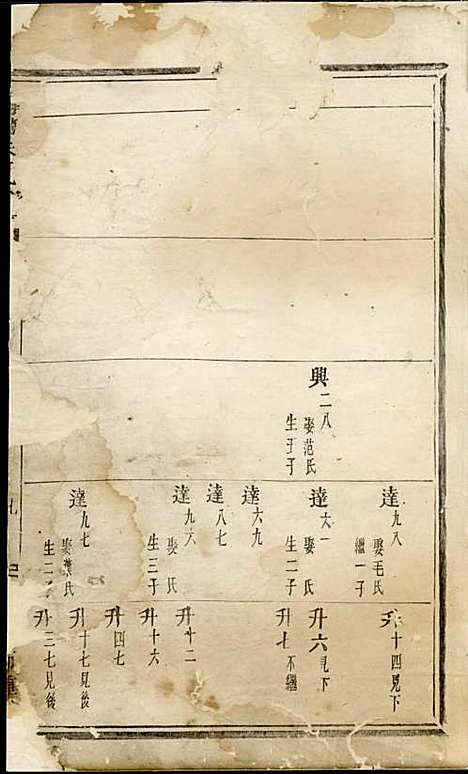 興二八
娶范氏
生子
達九八
娶毛氏
繼一子
達六一
娶 氏
生二子
達六九
達八七
達九六
娶 氏
生三子
達九七
娶葉氏
生二子
升十四見下
升六見下
升七不繼
升十二
升十六
升四七
升十七見後
升三七見後